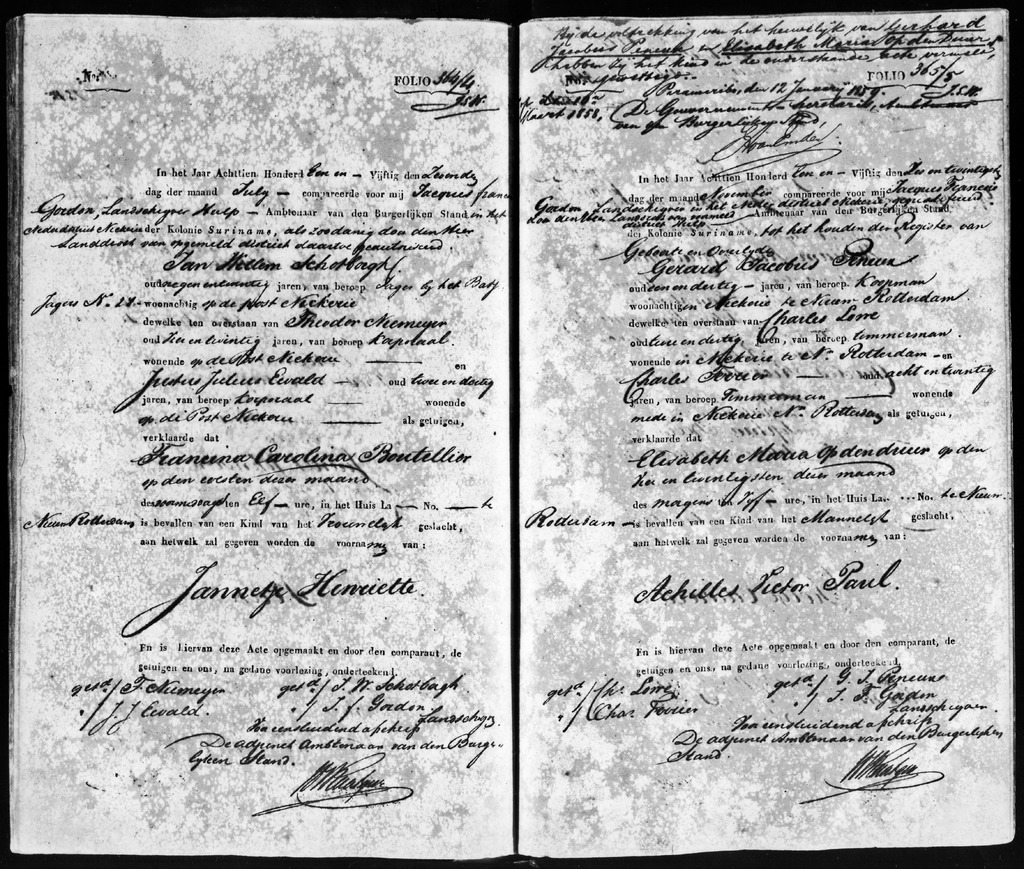 No.
FOLIO 364/4
J.S.W.
In het Jaar Achttien Honderd Een en – Vijftig den Zesden
dag der maand July – compareerde voor mij Jacques Fran
Gordon, Landschigver Hulp – Ambtenaar van den Burgerlijken Stand, in het
Neder district Nickerie der Kolonie Suriname, als zoodanig door den Heer
Landdrost van opgemeld district daartoe geautoriseerd.
Jan Willem Schotbagh
oud negen entwintig jaren, van beroep Jager by het Bat
Jagers No. 27 – woonachtig op de post Nickerie
dewelke ten overstaan van Theodor Niemeyer
oud Zes en twintig jaren, van beroep Kaporaal
wonende op de Post Nickerie — en
Justus Julius Ewald — oud twee en dertig
jaren, van beroep Korporaal — wonende
op de Post Nickerie — als getuigen,
verklaarde dat
Francina Carolina Boutellier
op den eersten dezer maand
des namiddags ten Elf – ure, in het Huis La. — No. — te
Nieuw Rotterdam is bevallen van een Kind van het Vrouwelyk geslacht,
aan hetwelk zal gegeven worden de voornamen van:
Jannetje Henriette.
En is hiervan deze Acte opgemaakt en door den comparant, de
getuigen en ons, na gedane voorlezing, onderteekend.
getd/ F. Niemeyer getd/ J. W. Schotbagh
" / J. J. Ewald. " / J. f. Gordon
Landschigver
Voor eensluidend afschrift
De adjunct Ambtenaar van den Burger-
lyken Stand.
By de voltrekking van het huwelyk van Gerhard
Jacobus Peneux en Elisabeth Maria Op den Duur,
hebben zy het kind in de onderstaande acte vermeld,
gewettigd.
Paramaribo, den 12 January 1859.
De Gouvernements Secretaris, Ambtenaar
van den Burgerlyken Stand,
No.
FOLIO 365/5
J.S.W.
Maart 1858,
In het Jaar Achttien Honderd Een en – Vijftig den Zes en twintigsten
dag der maand November compareerde voor mij Jacques Francois
Gordon, Landschigver in het Neder district Nickerie, geautoriseerd
door den Heer Landdrost van gemeld Ambtenaar van den Burgerlijken Stand,
district Hulp –
der Kolonie Suriname, tot het houden der Register van
Geboorte en Overlyden
Gerard Jacobus Peneux
oud een en dertig – jaren, van beroep Koopman
woonachtig in Nickerie te Nieuw Rotterdam
dewelke ten overstaan van Charles Lowe
oud twee en dertig jaren, van beroep timmerman.
wonende in Nickerie te N. Rotterdam – en
Charles Fovier — oud acht en twintig
jaren, van beroep Timmerman — wonende
mede in Nickerie N. Rotterdam als getuigen,
verklaarde dat
Elisabeth Maria Op den druer op den
Zes en twintigsten dezer maand
des morgens ten Vyf – ure, in het Huis La. ... No. te Nieuw
Rotterdam – is bevallen van een Kind van het Mannelyk geslacht,
aan hetwelk zal gegeven worden de voornamen van:
Achilles Victor Paul.
En is hiervan deze Acte opgemaakt en door den comparant, de
getuigen en ons, na gedane voorlezing, onderteekend.
getd/ Chs. Lowe getd/ G. J. Peneux
" / Chas. Fovier " / J. F. Gordon
Landschigver
Voor eensluidend afschrift
De adjunct Ambtenaar van den Burgerlyken
Stand.